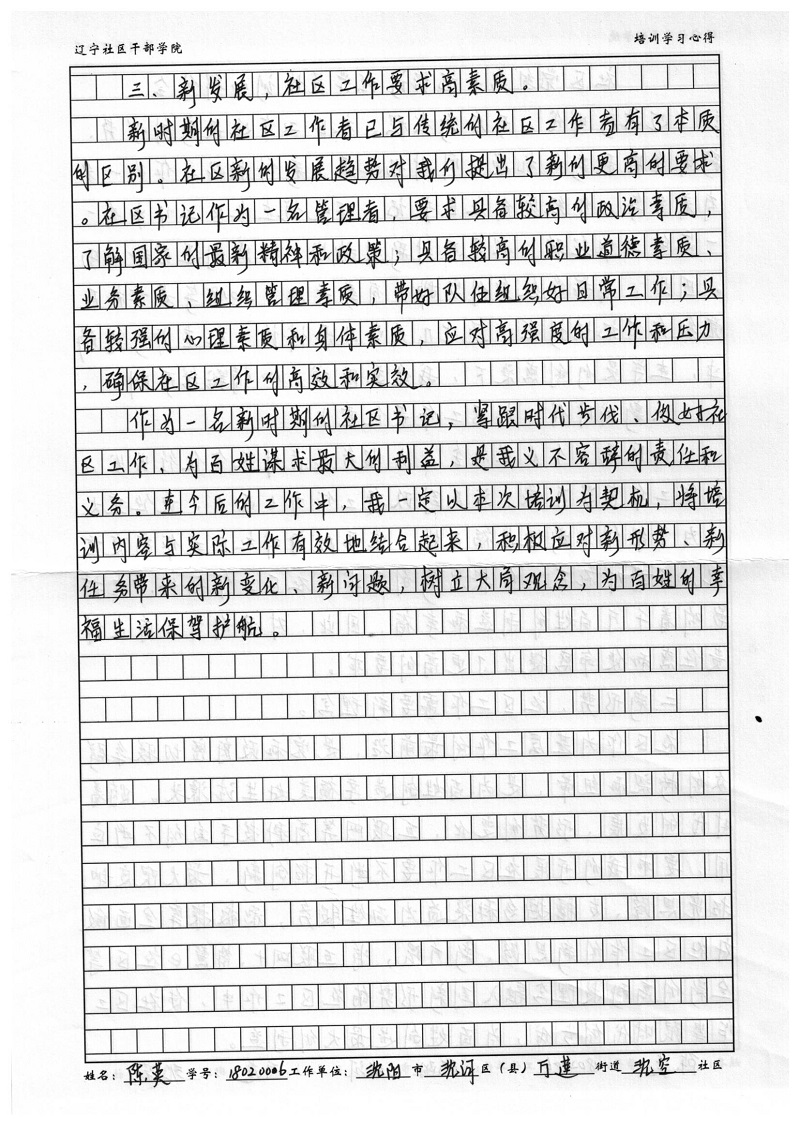 辽宁社区干部学院 培训学习心得
三、新发展，社区工作要求高素质。
新时期的社区工作者已与传统的社区工作者有了本质
的区别。社区新的发展趋势对我们提出了新的更高的要求
。社区书记作为一名管理者，要求具备较高的政治素质，
了解国家的最新精神和政策；具备较高的职业道德素质、
业务素质、组织管理素质，带好队伍组织好日常工作；具
备较强的心理素质和身体素质，应对高强度的工作和压力
，确保社区工作的高效和实效。
作为一名新时期的社区书记，紧跟时代步伐、做好社
区工作、为百姓谋求最大的利益，是我义不容辞的责任和
义务。在今后的工作中，我一定以本次培训为契机，将培
训内容与实际工作有效地结合起来，积极应对新形势、新
任务带来的新变化、新问题，树立大局观念，为百姓的幸
福生活保驾护航。
姓名：陈英 学号：18020006 工作单位：沈阳市 沈河区（县）万莲街道 沈空社区